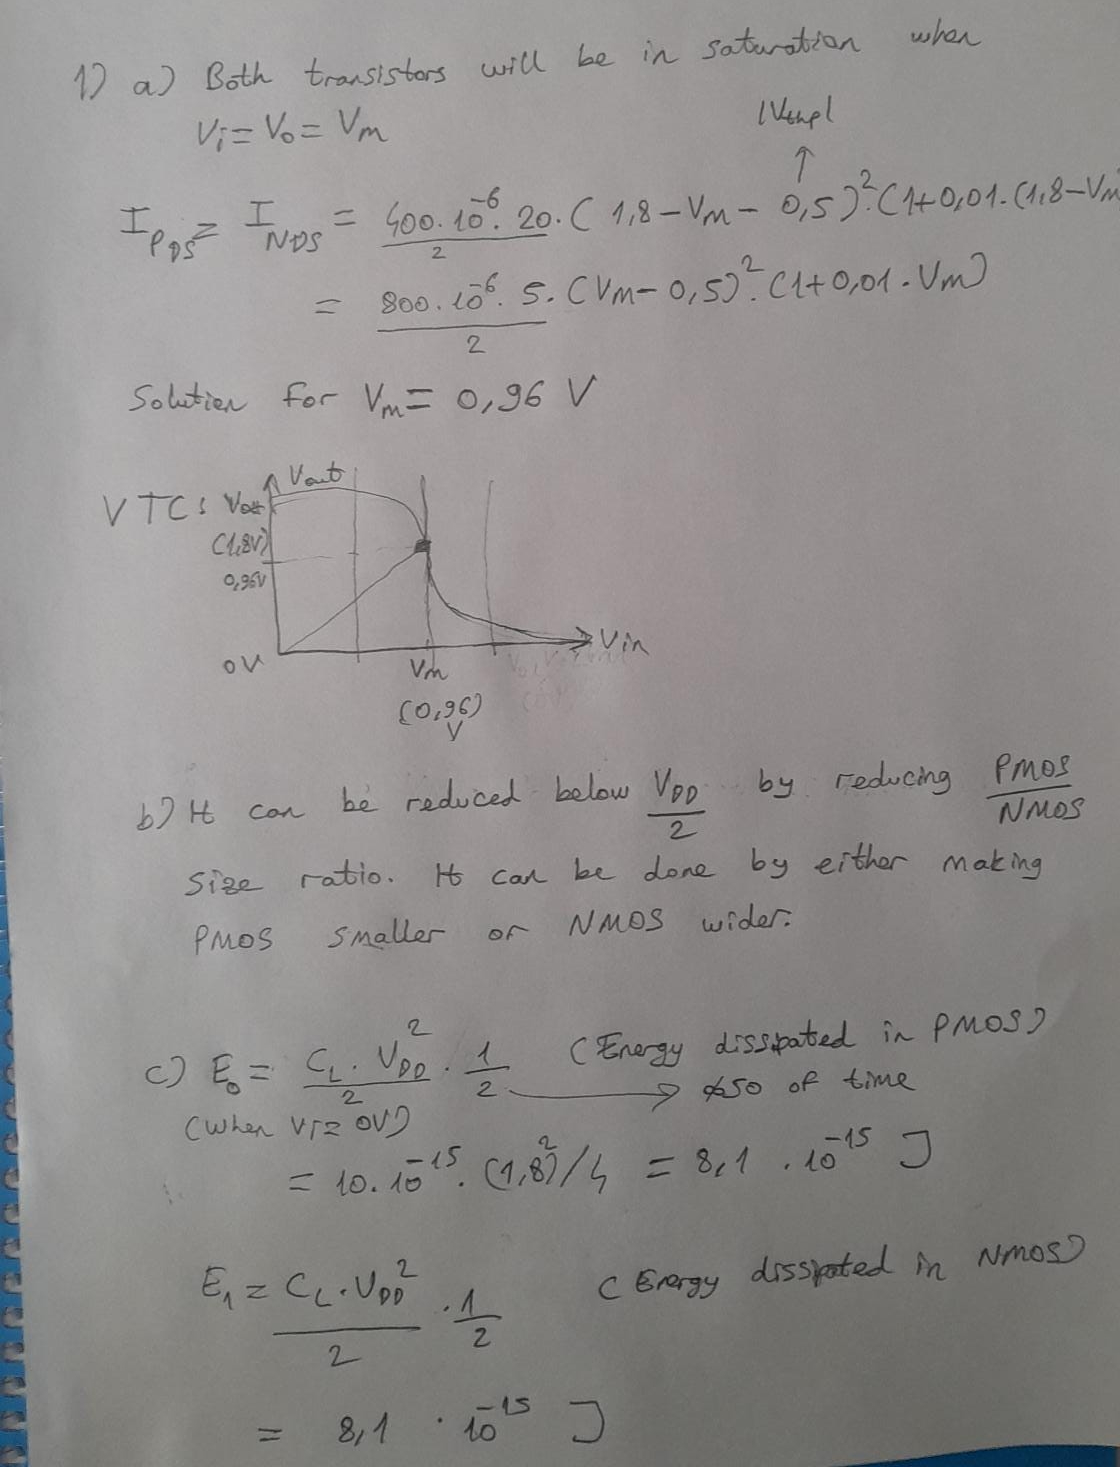 1) a) Both transistors will be in saturation when
Vi = Vo = Vm
|Vthp|
↑
I_PDS = I_NDS = 400.10^-6.20/2 . (1,8 - Vm - 0,5)^2.(1+0,01.(1,8-Vm
= 800.10^-6.5/2 . (Vm - 0,5)^2.(1+0,01.Vm)
Solution for Vm = 0,96 V
VTC:
Vout
(1,8V)
0,96V
0V
Vm
Vin
(0,96)
V
b) It can be reduced below VDD/2 by reducing PMOS/NMOS
size ratio. It can be done by either making
PMOS smaller or NMOS wider.
c) E0 = CL.VDD^2/2 . 1/2 (Energy dissipated in PMOS)
→ %50 of time
(when Vi = 0V)
= 10.10^-15.(1,8)^2/4 = 8,1 . 10^-15 J
E1 = CL.VDD^2/2 . 1/2 (Energy dissipated in NMOS)
= 8,1 . 10^-15 J